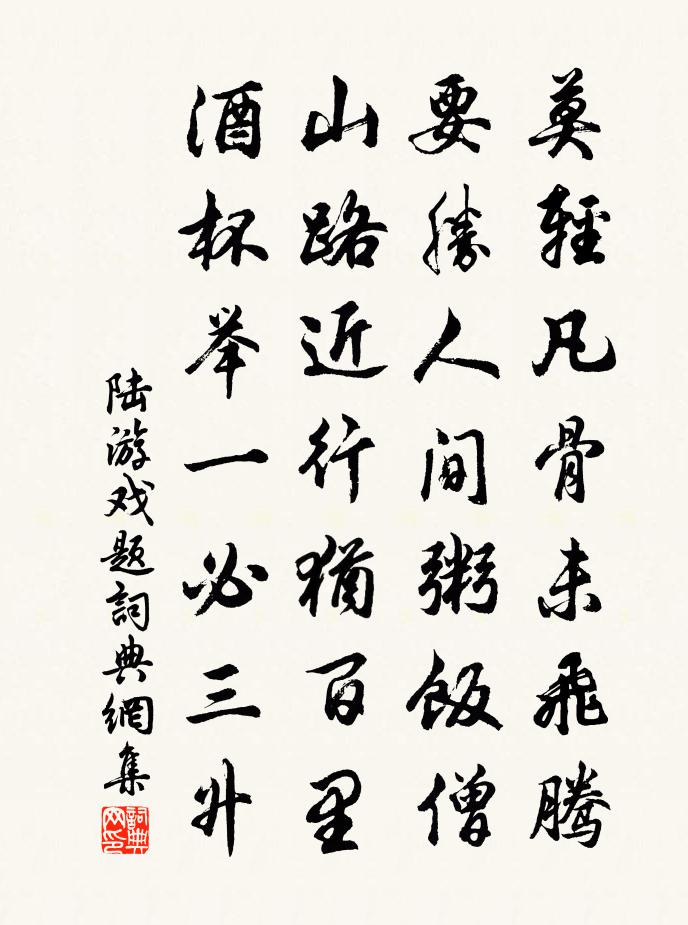 莫輕凡骨未飛騰
要勝人間粥飯僧
山路近行猶百里
酒杯举一必三升
陆游戏題詞典網集
詞典网印